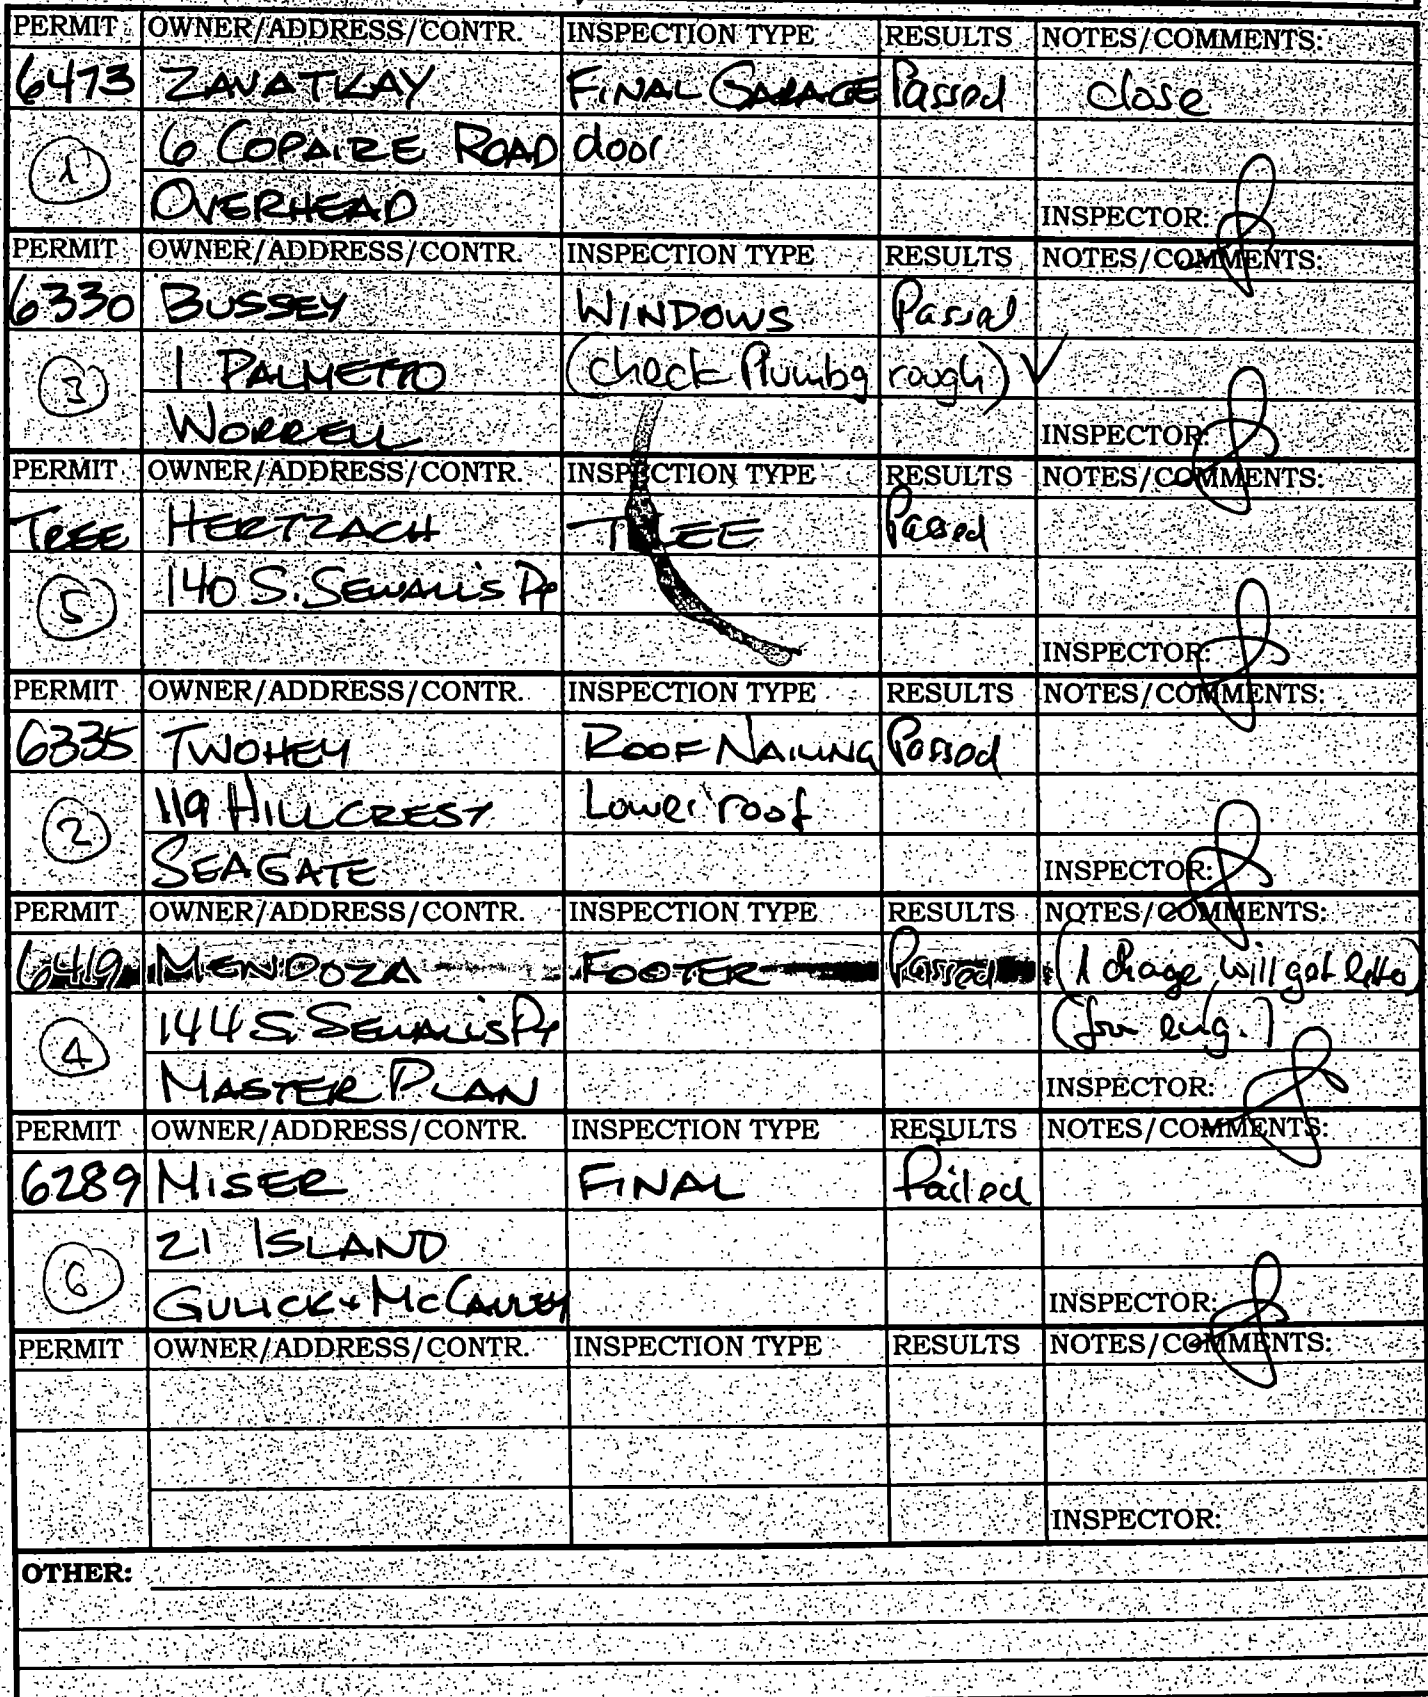 PERMIT OWNER/ADDRESS/CONTR. INSPECTION TYPE RESULTS NOTES/COMMENTS:
6473 ZAVATKAY FINAL GARAGE Passed close
1 6 COPAIRE ROAD door
OVERHEAD INSPECTOR:
PERMIT OWNER/ADDRESS/CONTR. INSPECTION TYPE RESULTS NOTES/COMMENTS:
6330 BUSSEY WINDOWS Passed
3 1 PALMETTO (check Plumbg rough) ✓
WORRELL INSPECTOR:
PERMIT OWNER/ADDRESS/CONTR. INSPECTION TYPE RESULTS NOTES/COMMENTS:
TREE HERTZACH TREE Passed
5 140 S. SEWALL'S PT
INSPECTOR:
PERMIT OWNER/ADDRESS/CONTR. INSPECTION TYPE RESULTS NOTES/COMMENTS:
6335 TWOHEY ROOF NAILING Passed
2 119 HILLCREST Lower roof
SEAGATE INSPECTOR:
PERMIT OWNER/ADDRESS/CONTR. INSPECTION TYPE RESULTS NOTES/COMMENTS:
6419 MENDOZA FOOTER Passed (1 change, will get letter)
4 144 S. SEWALL'S PT (from eng.)
MASTER PLAN INSPECTOR:
PERMIT OWNER/ADDRESS/CONTR. INSPECTION TYPE RESULTS NOTES/COMMENTS:
6289 MISER FINAL Failed
6 21 ISLAND
GULICK + McCAULEY INSPECTOR:
PERMIT OWNER/ADDRESS/CONTR. INSPECTION TYPE RESULTS NOTES/COMMENTS:
INSPECTOR:
OTHER: